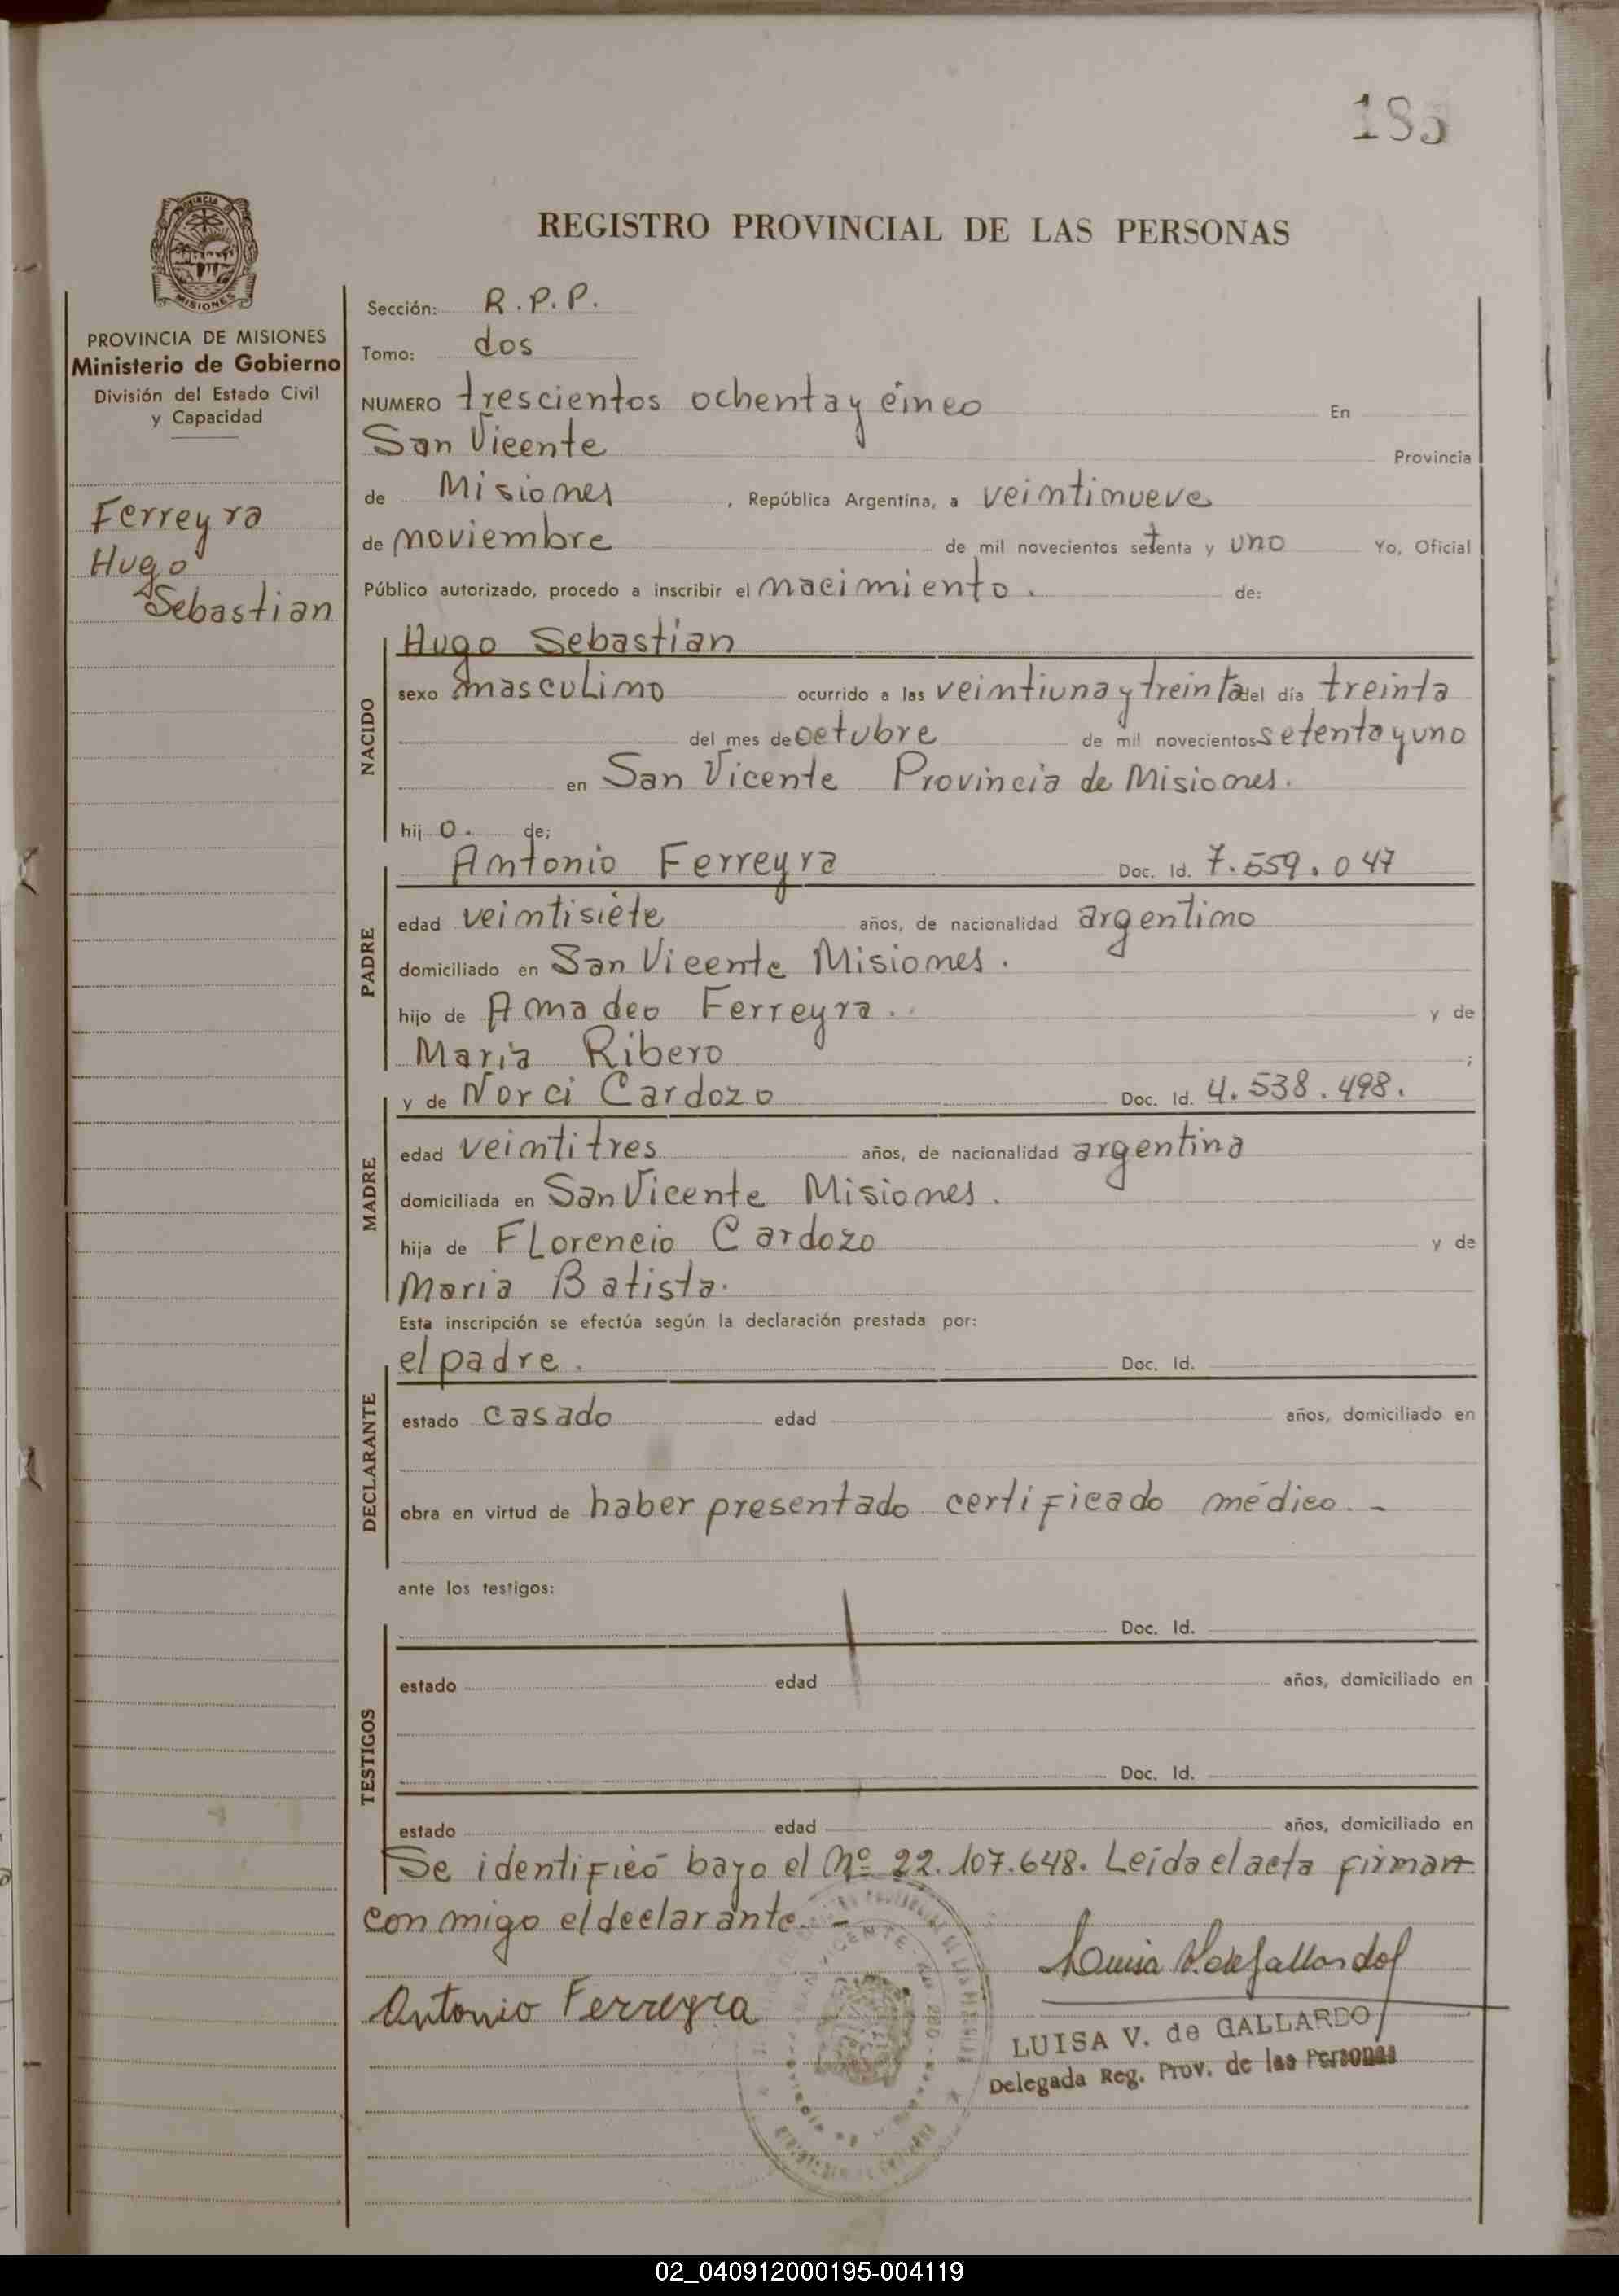 185
PROVINCIA
MISIONES
PROVINCIA DE MISIONES
Ministerio de Gobierno
División del Estado Civil
y Capacidad
Ferreyra
Hugo
Sebastian
REGISTRO PROVINCIAL DE LAS PERSONAS
Sección: R.P.P.
Tomo: dos
NUMERO trescientos ochenta y cinco En
San Vicente Provincia
de Misiones, República Argentina, a veintinueve
de noviembre de mil novecientos setenta y uno Yo, Oficial
Público autorizado, procedo a inscribir el nacimiento. de:
NACIDO
Hugo Sebastian
sexo masculino ocurrido a las veintiuna y treinta del día treinta
del mes de octubre de mil novecientos setenta y uno
en San Vicente Provincia de Misiones.
hijo. de:
PADRE
Antonio Ferreyra Doc. Id. 7.559.047
edad veintisiete años, de nacionalidad argentino
domiciliado en San Vicente Misiones.
hijo de Amadeo Ferreyra.. y de
Maria Ribero ;
MADRE
y de Norci Cardozo Doc. Id. 4.538.498.
edad veintitres años, de nacionalidad argentina
domiciliada en San Vicente Misiones.
hija de Florencio Cardozo y de
Maria Batista.
Esta inscripción se efectúa según la declaración prestada por:
DECLARANTE
el padre. Doc. Id.
estado casado edad años, domiciliado en
obra en virtud de haber presentado certificado médico.-
ante los testigos:
TESTIGOS
Doc. Id.
estado edad años, domiciliado en
Doc. Id.
estado edad años, domiciliado en
Se identificó bajo el Nº 22.107.648. Leída el acta firman
conmigo el declarante.-
Antonio Ferreyra
LUISA V. de GALLARDO
Delegada Reg. Prov. de las Personas
02_040912000195-004119